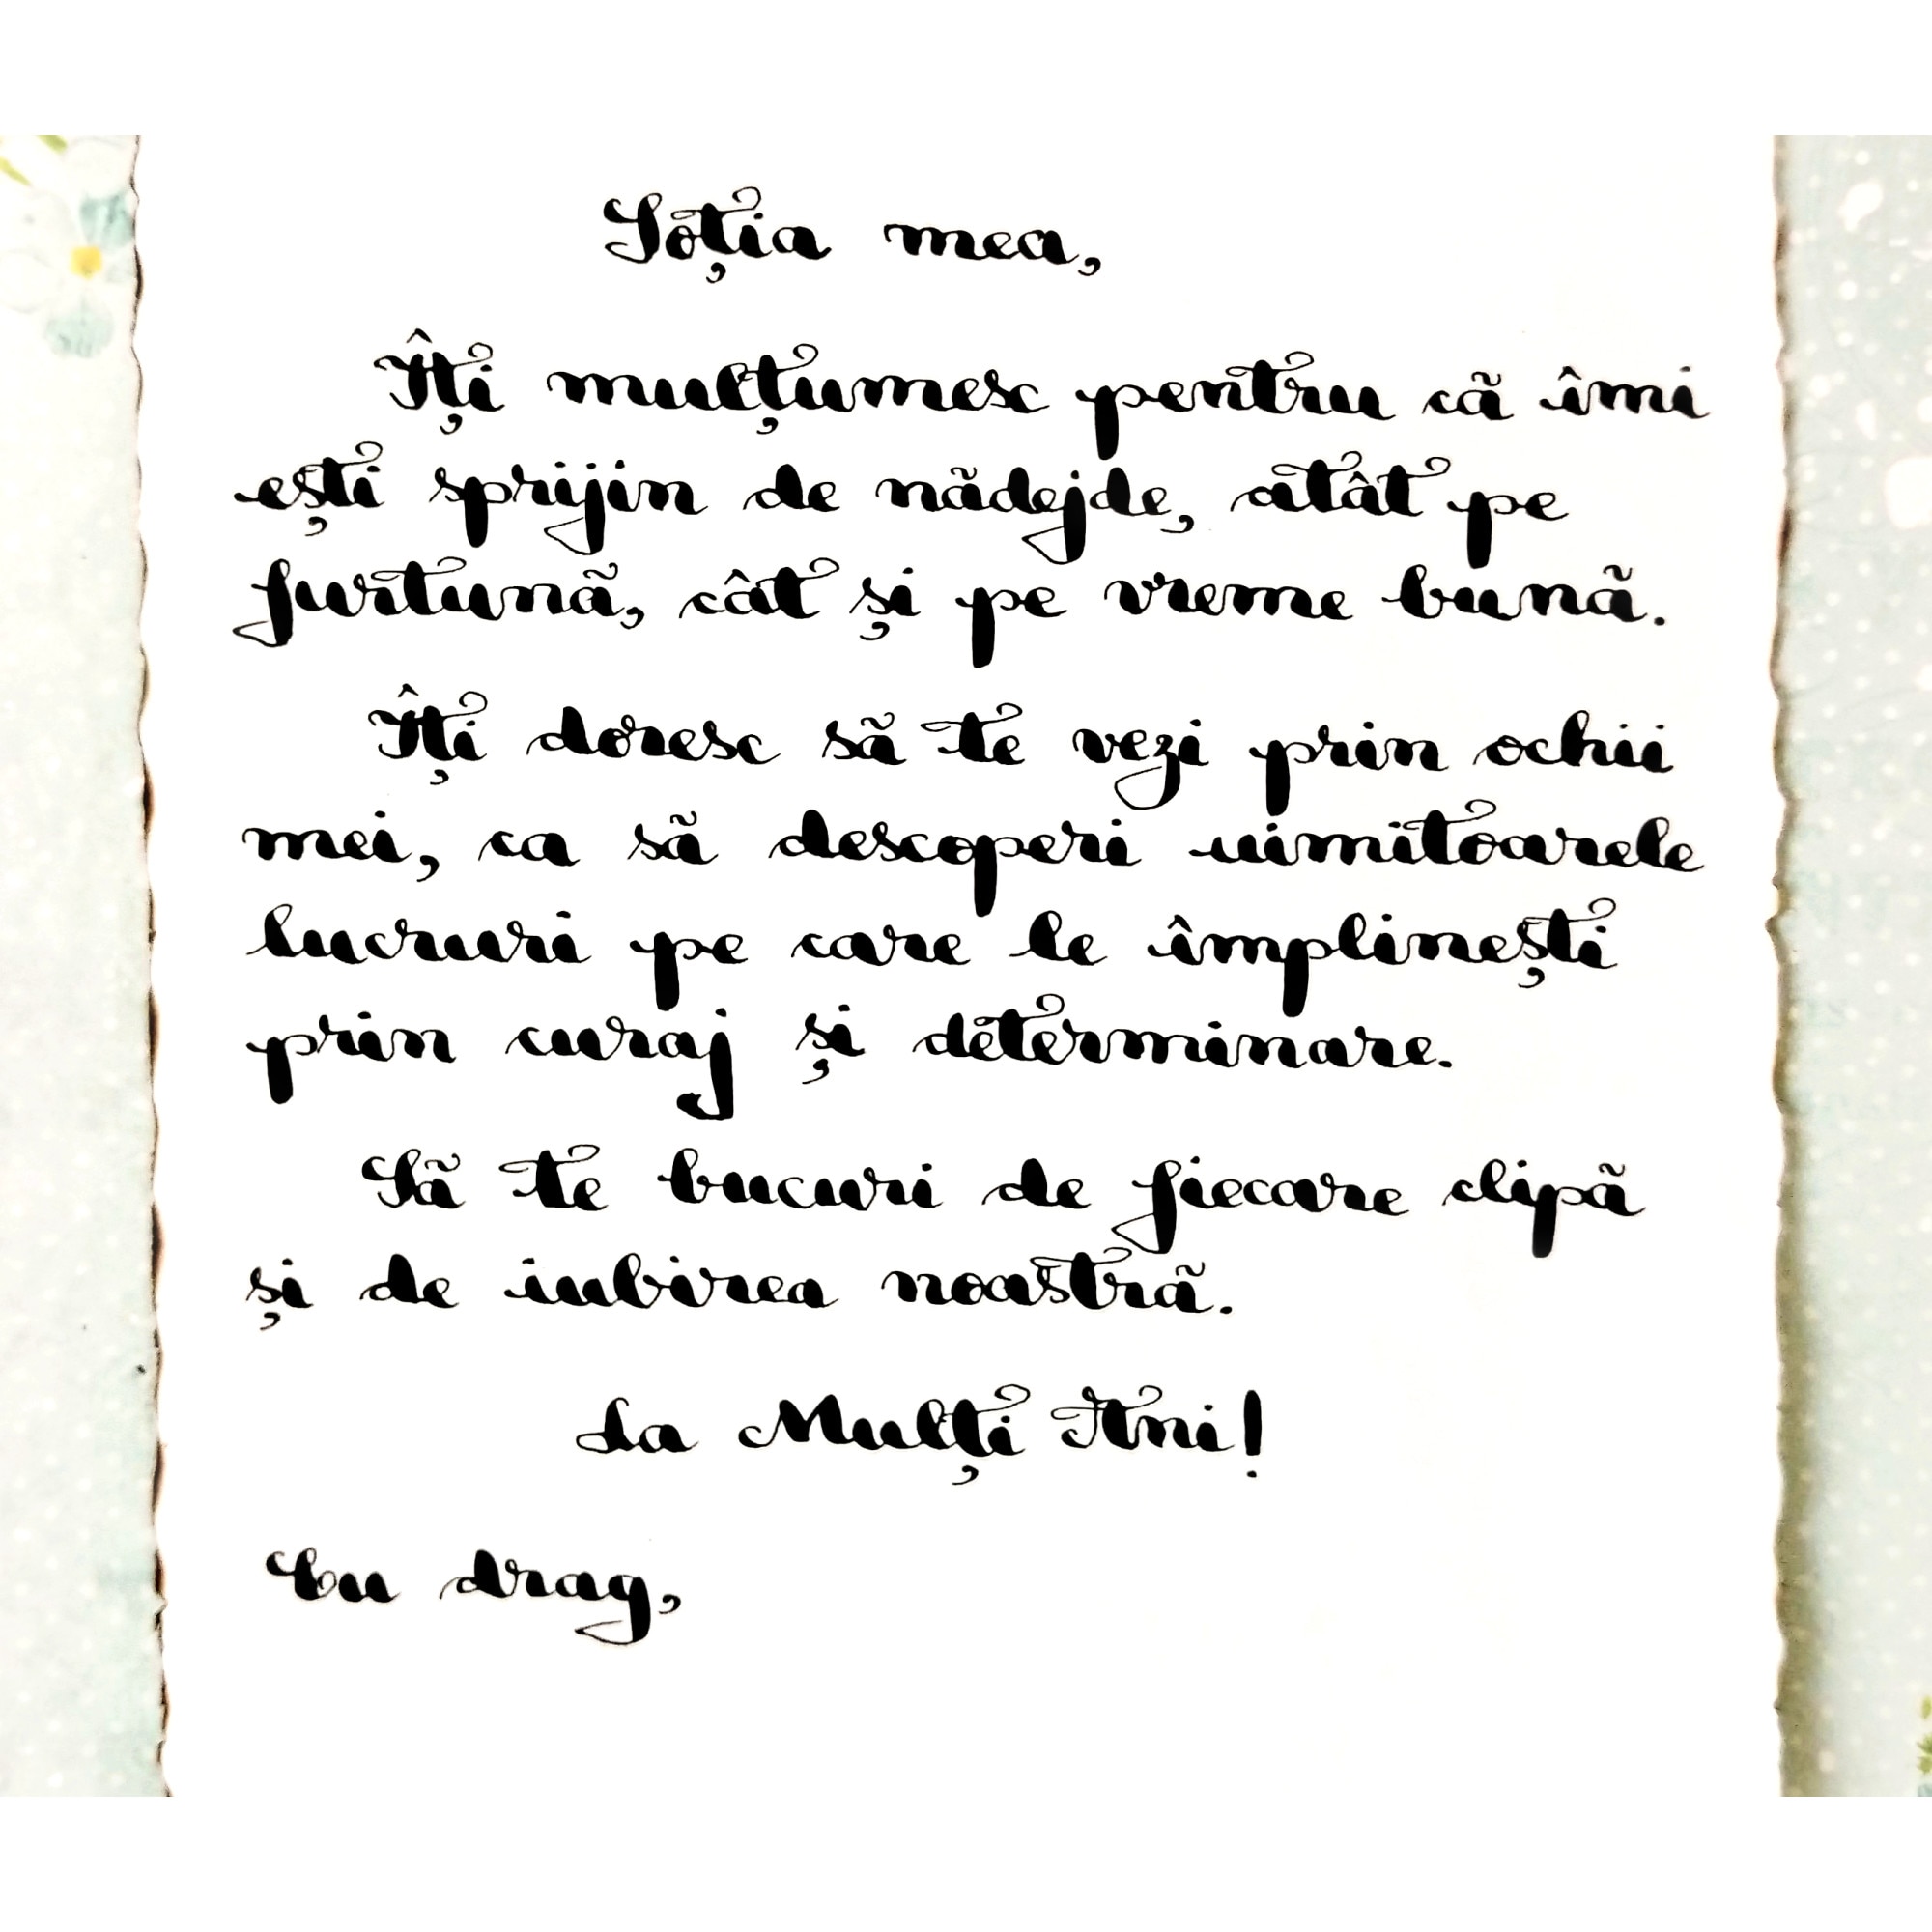 Soția mea,
Îți mulțumesc pentru că îmi
ești sprijin de nădejde, atât pe
furtună, cât și pe vreme bună.
Îți doresc să te vezi prin ochii
mei, ca să descoperi uimitoarele
lucruri pe care le împlinești
prin curaj și determinare.
Să te bucuri de fiecare clipă
și de iubirea noastră.
La Mulți Ani!
Cu drag,